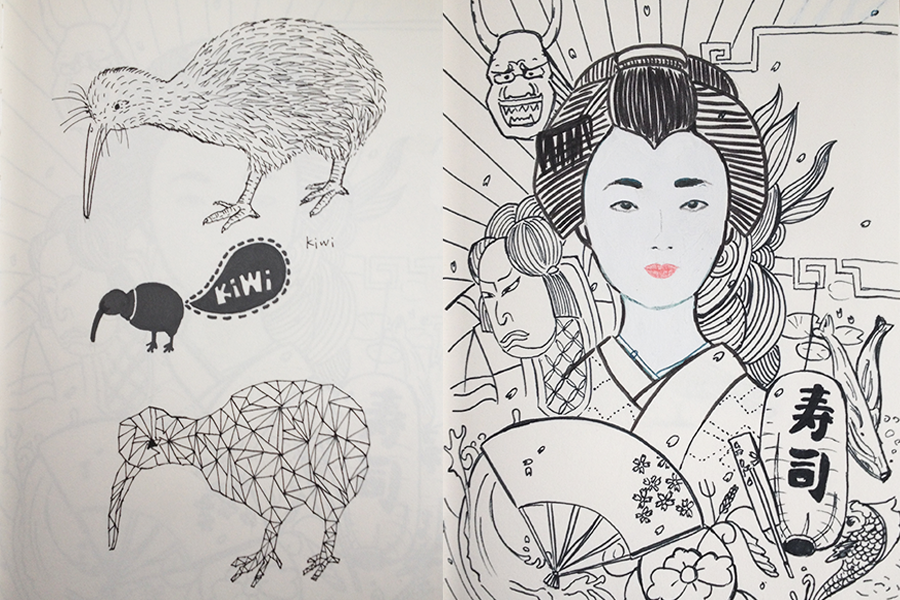 kiwi
KiWi
寿司